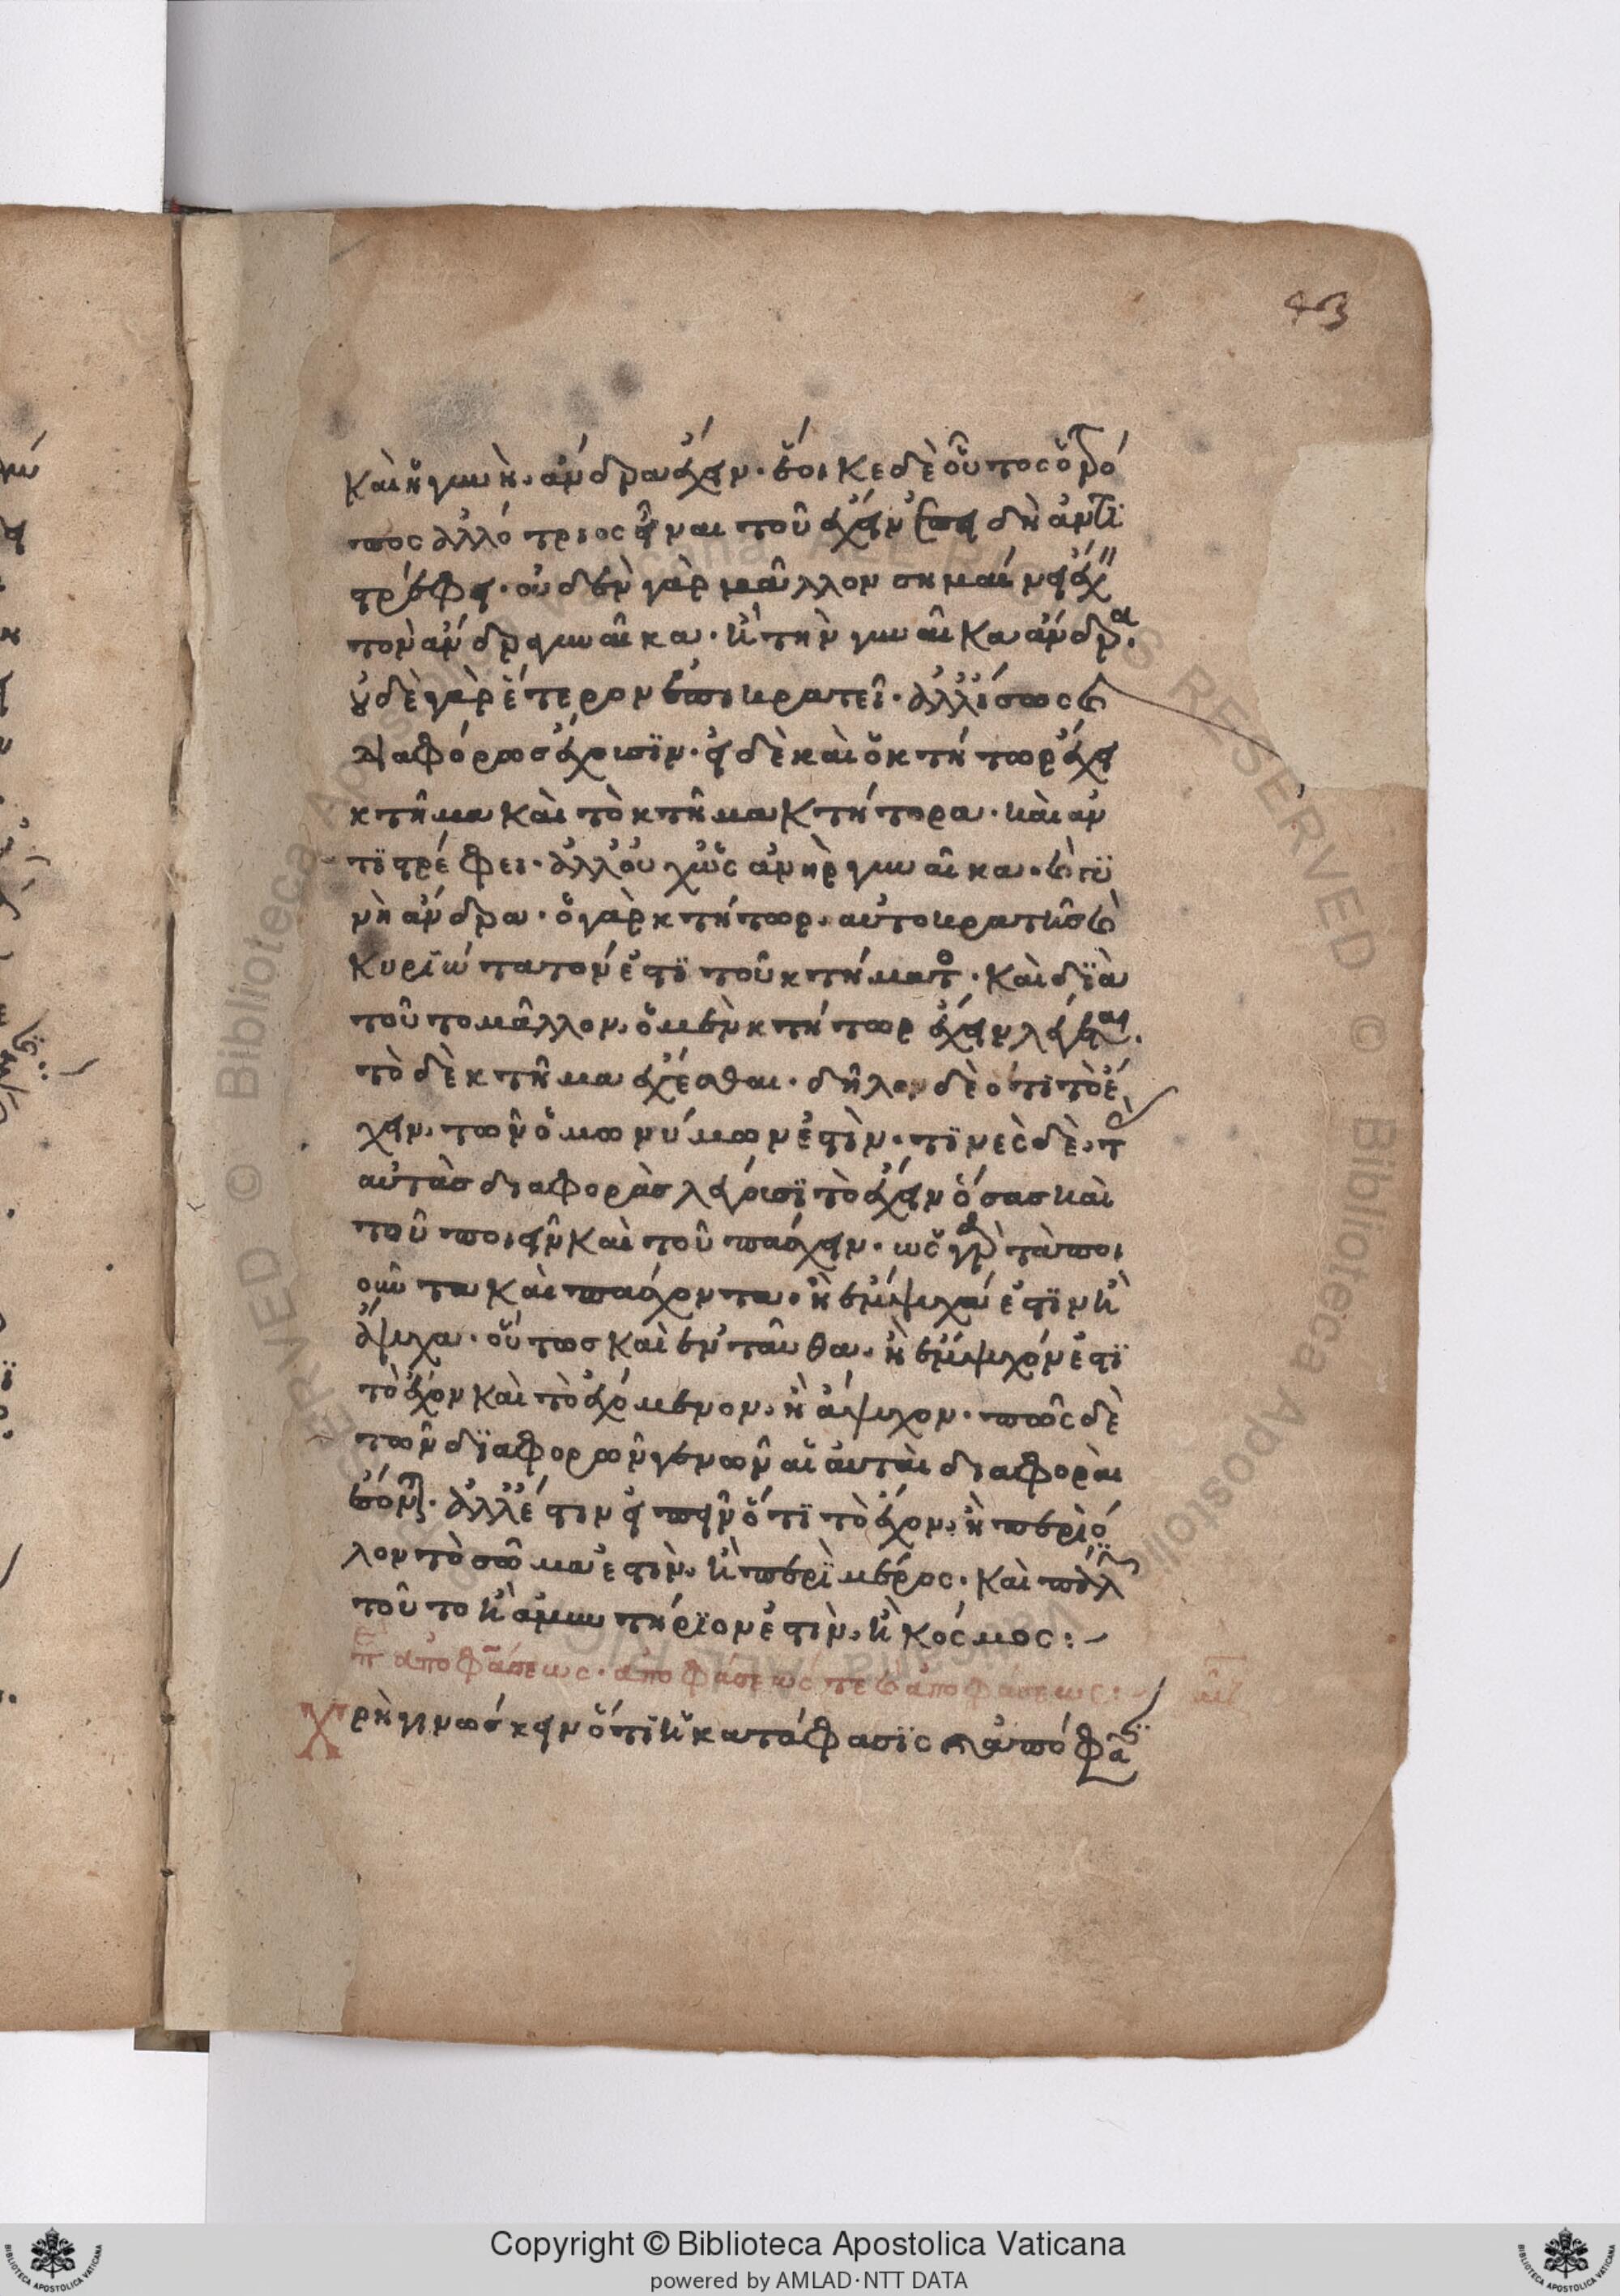 43
καὶ ἡ γυνὴ, ἄνδρα ἔχειν· ἔοικε δὲ οὗτος ὁ τρό
πος ἀλλότριος εἶναι τοῦ ἔχειν ἐπεὶ δὴ ἀντι
στρέφει· οὐδὲν γὰρ μᾶλλον σημαίνει ἔχειν
τὸν ἄνδρα γυναῖκα· ἢ τὴν γυναῖκα ἄνδρα·
οὐδὲ γὰρ ἕτερον ἐπικρατεῖ· ἀλλ' ἴσως
διαφόρως ἔχουσιν· εἰ δὲ καὶ ὁ κτήτωρ ἔχει
κτῆμα καὶ τὸ κτῆμα κτήτορα· καὶ ἀν
τιστρέφει· ἀλλ' οὐχ ὡς ἀνὴρ γυναῖκα· καὶ γυ
νὴ ἄνδρα· ὁ γὰρ κτήτωρ, αὐτοκρατὴς καὶ
κυριώτατόν ἐστι τοῦ κτήματος· καὶ διὰ
τοῦτο μᾶλλον, ὁ μὲν κτήτωρ ἔχειν λέγεται·
τὸ δὲ κτῆμα ἔχεσθαι· δῆλον δὲ ὅτι τὸ ἔ
χειν, τῶν ὁμωνύμων ἐστίν· τινὲς δὲ, τὰς
αὐτὰς διαφορὰς λέγουσι τὸ ἔχειν ὅσας καὶ
τοῦ ποιεῖν καὶ τοῦ πάσχειν· ὡς γὰρ τὰ ποι
οῦντα καὶ πάσχοντα, ἢ ἔμψυχά ἐστιν ἢ
ἄψυχα· οὕτως καὶ ἐνταῦθα, ἢ ἔμψυχόν ἐστι
τὸ ἔχον καὶ τὸ ἐχόμενον, ἢ ἄψυχον· πῶς δὲ
τῶν διαφόρων γενῶν αἱ αὐταὶ διαφοραὶ
ἔσονται· ἀλλ' ἔστιν εἰπεῖν ὅτι τὸ ἔχον, ἢ περὶ ὅ
λον τὸ σῶμα ἐστίν, ἢ περὶ μέρος· καὶ πάλιν
τοῦτο ἢ ἀμυντήριον ἐστίν, ἢ κόσμος:
περὶ ἀποφάσεως· ἀποφάσεώς τε καὶ ἀποφάσεως:
Χρὴ γινώσκειν ὅτι ἡ κατάφασις καὶ ἀπόφα